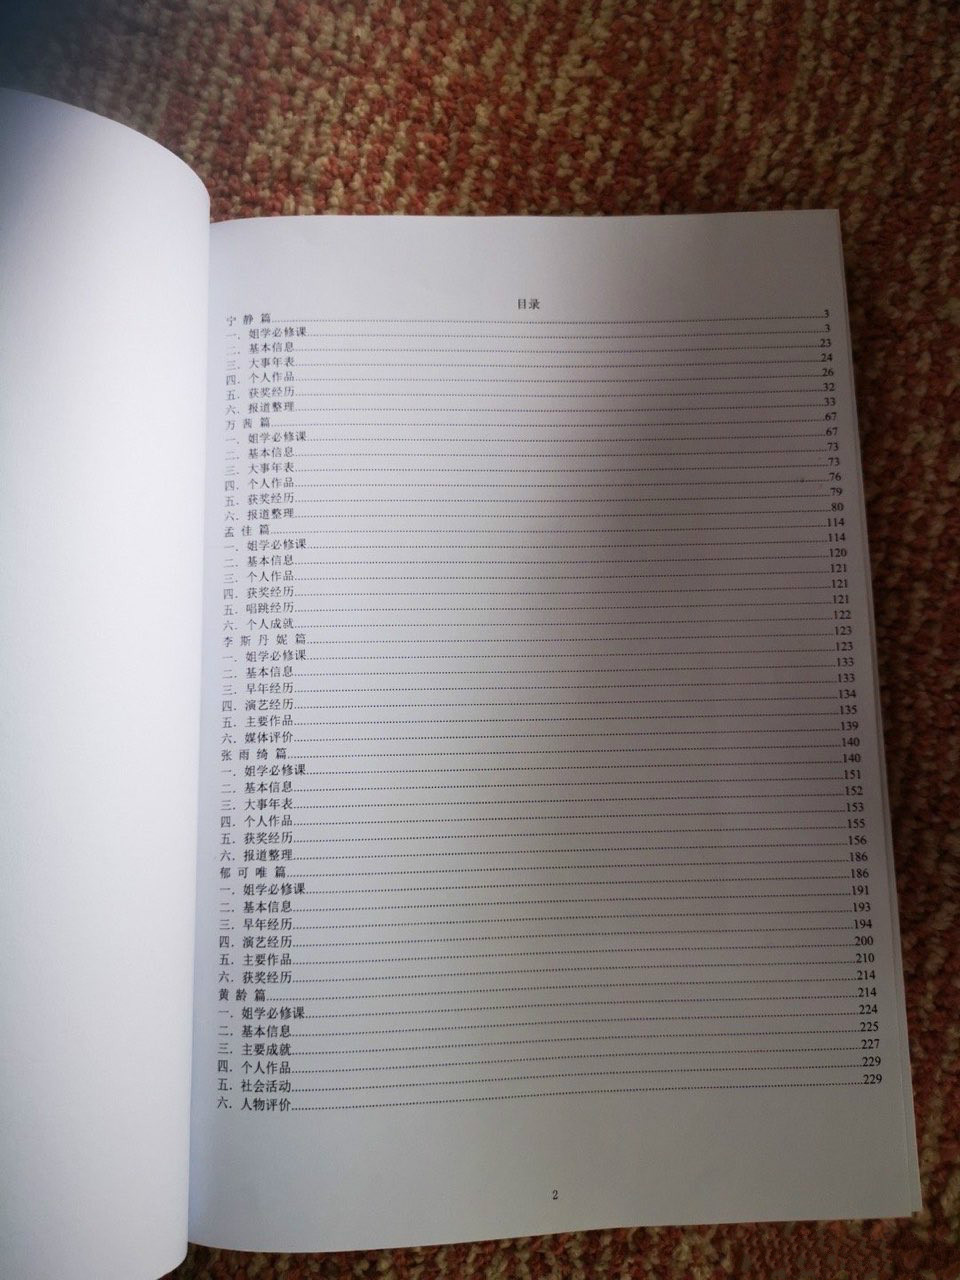 目录
宁 静 篇..........3
一．姐学必修课..........3
二．基本信息..........23
三．大事年表..........24
四．个人作品..........26
五．获奖经历..........32
六．报道整理..........33
万 茜 篇..........67
一．姐学必修课..........67
二．基本信息..........73
三．大事年表..........73
四．个人作品..........76
五．获奖经历..........79
六．报道整理..........80
孟 佳 篇..........114
一．姐学必修课..........114
二．基本信息..........120
三．个人作品..........121
四．获奖经历..........121
五．唱跳经历..........121
六．个人成就..........122
李 斯 丹 妮 篇..........123
一．姐学必修课..........123
二．基本信息..........133
三．早年经历..........133
四．演艺经历..........134
五．主要作品..........135
六．媒体评价..........139
张 雨 绮 篇..........140
一．姐学必修课..........140
二．基本信息..........151
三．大事年表..........152
四．个人作品..........153
五．获奖经历..........155
六．报道整理..........156
郁 可 唯 篇..........186
一．姐学必修课..........186
二．基本信息..........191
三．早年经历..........193
四．演艺经历..........194
五．主要作品..........200
六．获奖经历..........210
黄 龄 篇..........214
一．姐学必修课..........214
二．基本信息..........224
三．主要成就..........225
四．个人作品..........227
五．社会活动..........229
六．人物评价..........229
2